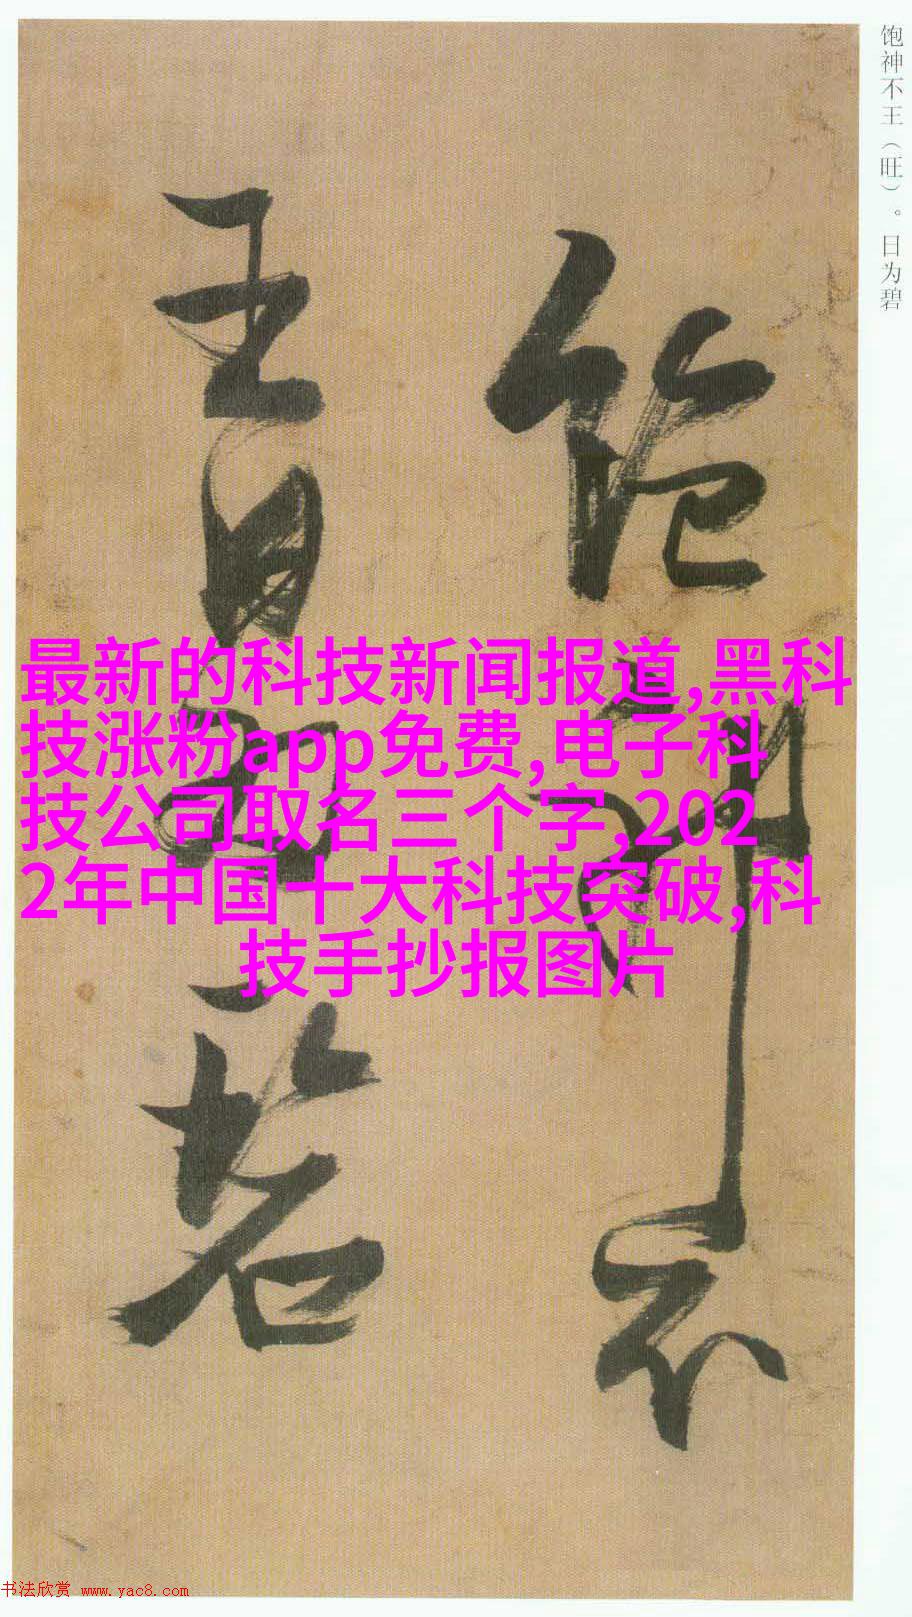 饱神不王（旺）。日为碧
饱神不
王日为碧
最新的科技新闻报道,黑科
技涨粉app免费,电子科
技公司取名三个字,202
2年中国十大科技突破,科
技手抄报图片
书法欣赏 www.yac8.com